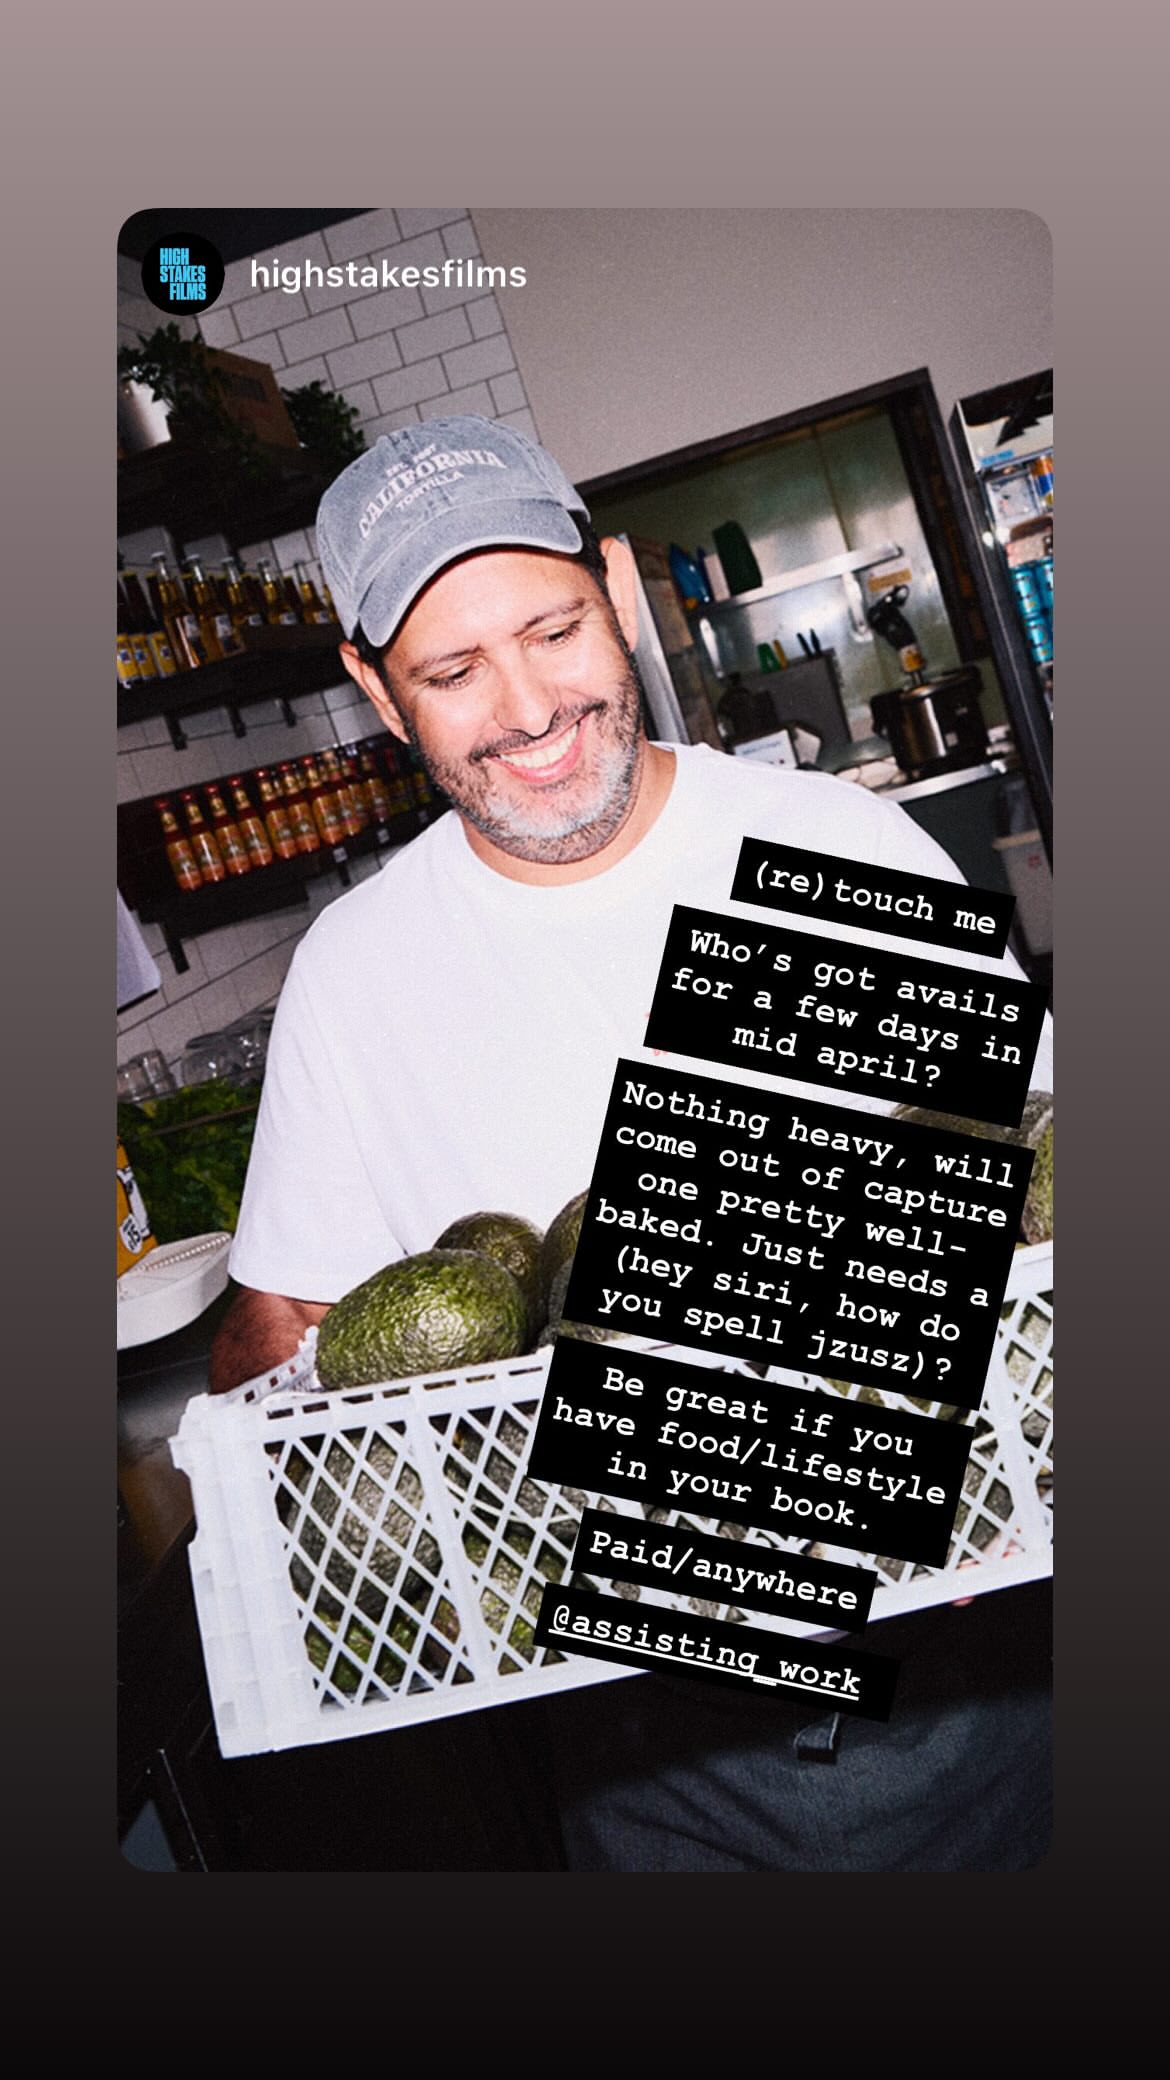 HIGH
STAKES
FILMS
highstakesfilms
CALIFORNIA
TORTILLA
(re)touch me
Who's got avails
for a few days in
mid april?
Nothing heavy, will
come out of capture
one pretty well-
baked. Just needs a
(hey siri, how do
you spell jzusz)?
Be great if you
have food/lifestyle
in your book.
Paid/anywhere
@assisting_work